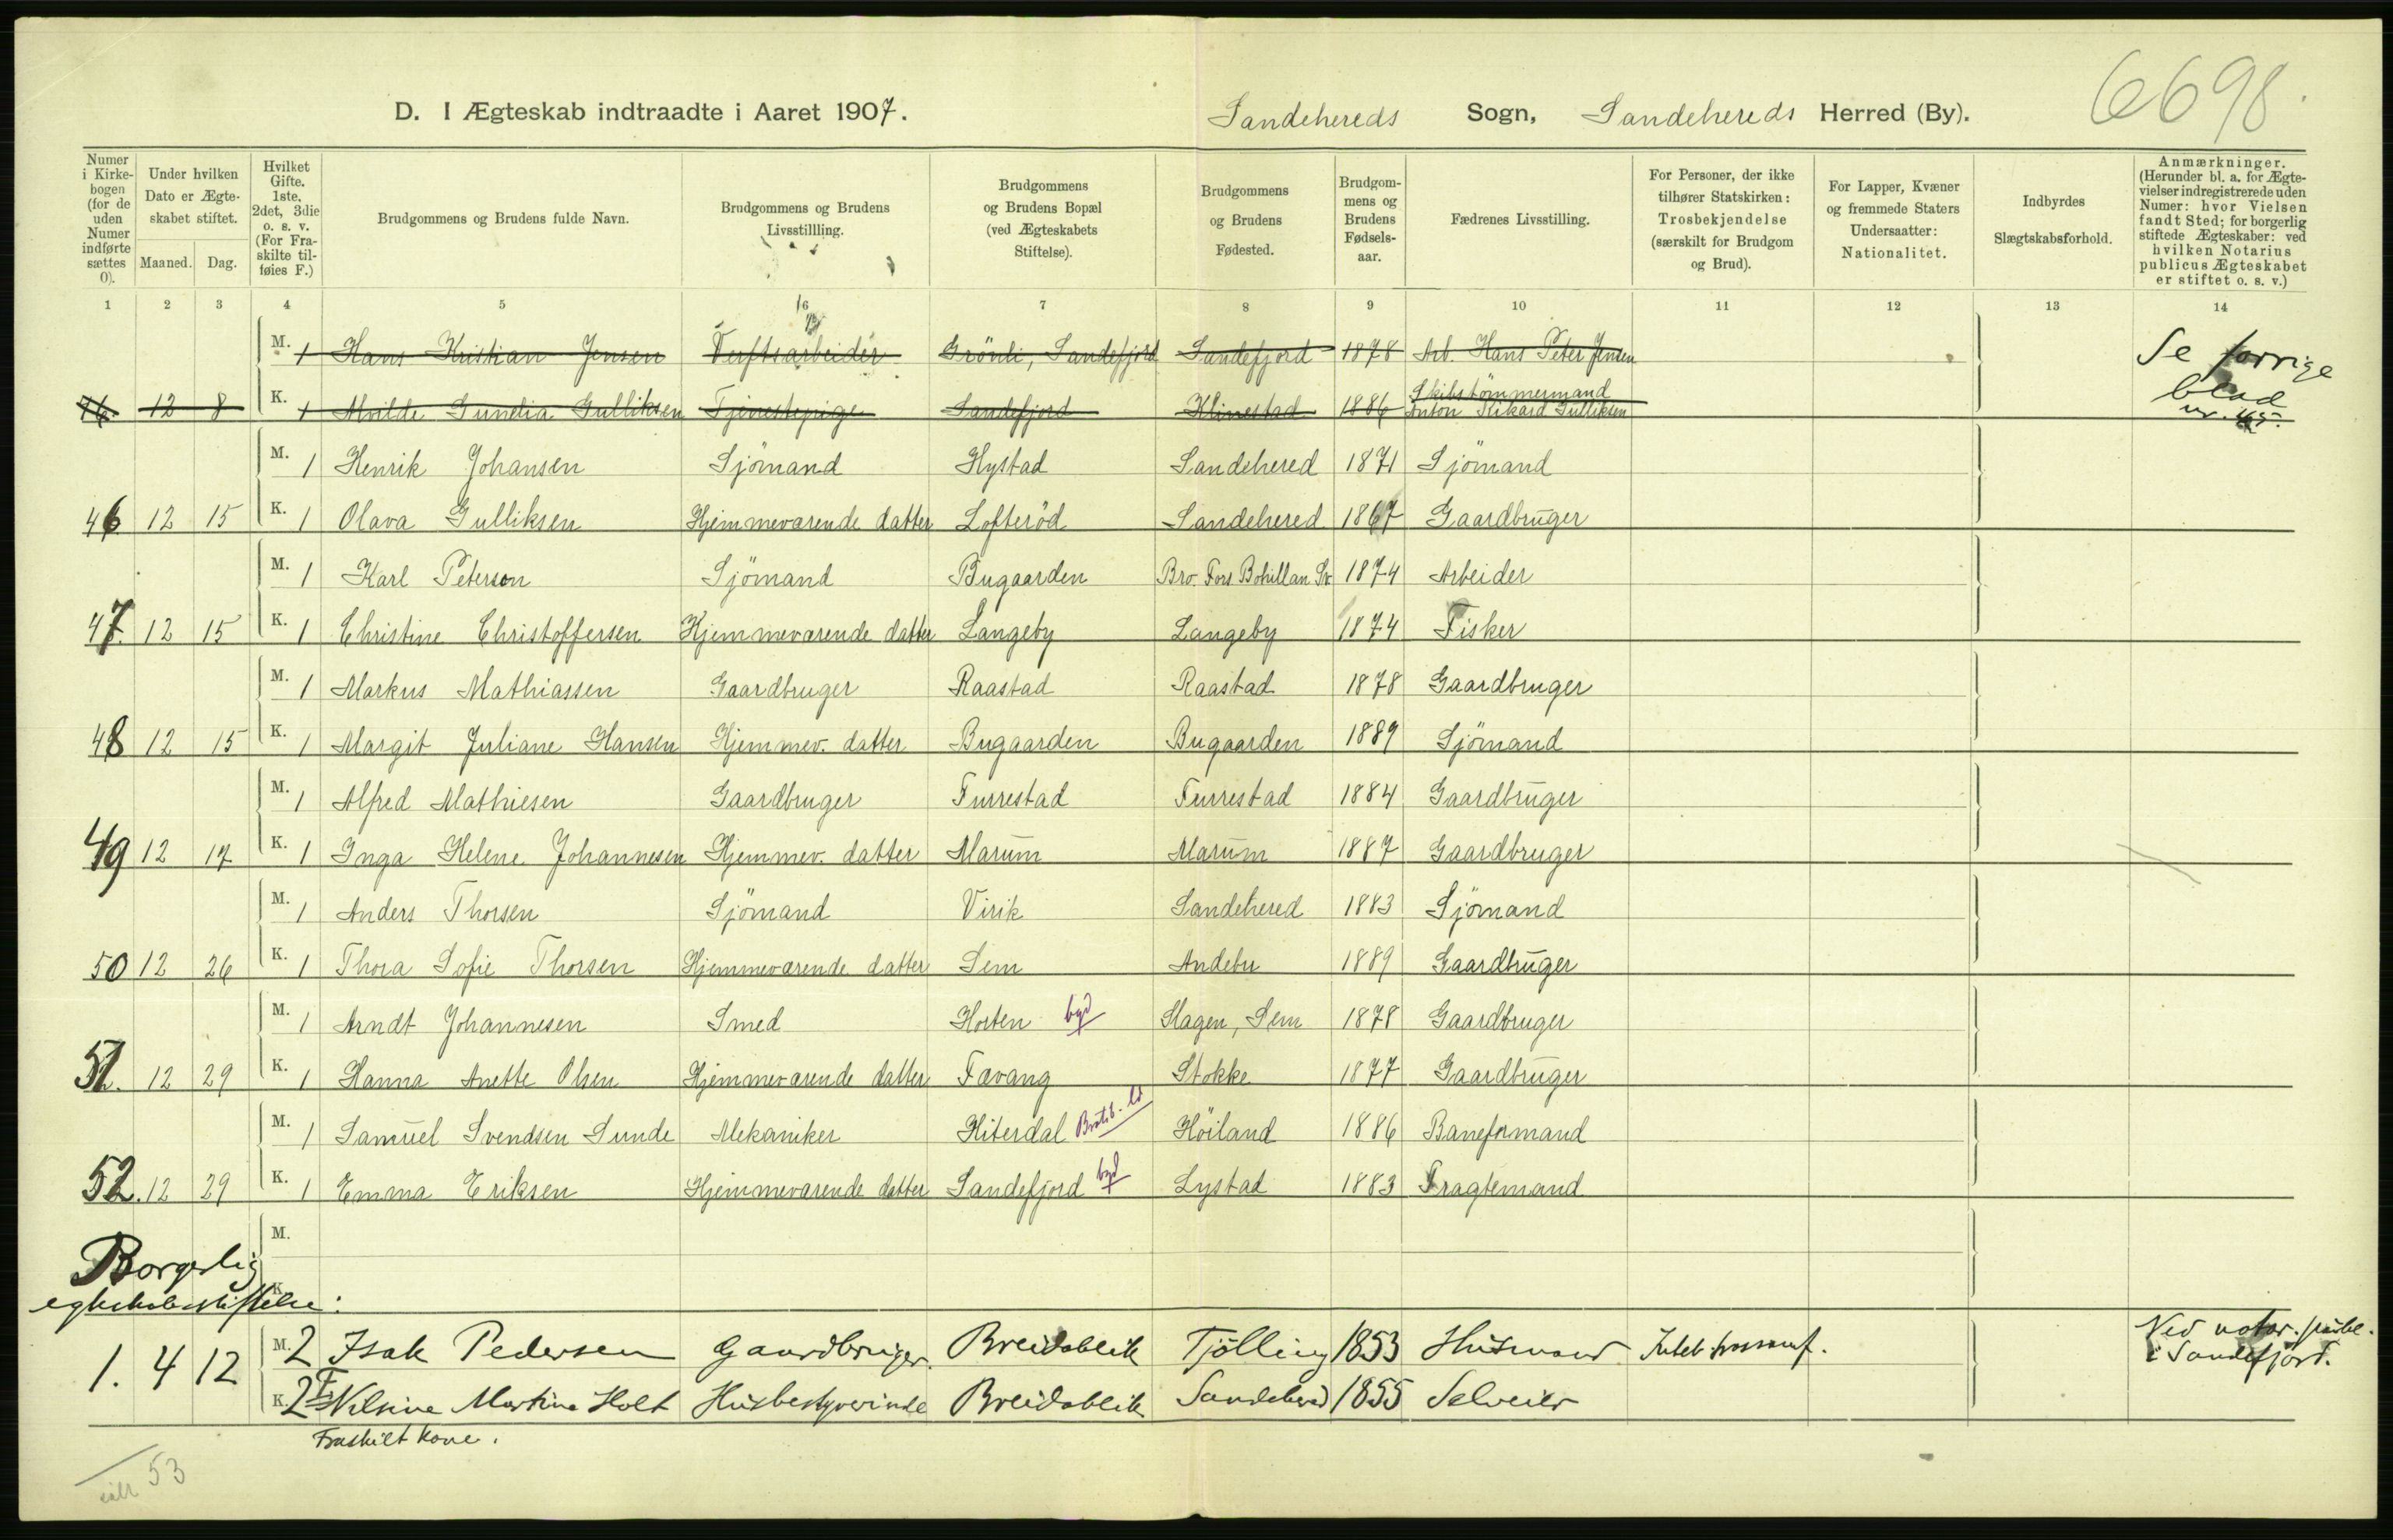 6698.
D. I Ægteskab indtraadte i Aaret 1907. Sandehereds Sogn, Sandehereds Herred (By).
Numer i Kirkebogen (for de uden Numer indførte sættes 0).
Under hvilken Dato er Ægteskabet stiftet.
Maaned. Dag.
Hvilket Gifte. 1ste, 2det, 3die o. s. v. (For Fraskilte tilføies F.)
Brudgommens og Brudens fulde Navn.
Brudgommens og Brudens Livsstillling.
Brudgommens og Brudens Bopæl (ved Ægteskabets Stiftelse).
Brudgommens og Brudens Fødested.
Brudgommens og Brudens Fødselsaar.
Fædrenes Livsstilling.
For Personer, der ikke tilhører Statskirken: Trosbekjendelse (særskilt for Brudgom og Brud).
For Lapper, Kvæner og fremmede Staters Undersaatter: Nationalitet.
Indbyrdes Slægtskabsforhold.
Anmærkninger. (Herunder bl. a. for Ægtevielser indregistrerede uden Numer: hvor Vielsen fandt Sted; for borgerlig stiftede Ægteskaber: ved hvilken Notarius publicus Ægteskabet er stiftet o. s. v.)
1 2 3 4 5 6 7 8 9 10 11 12 13 14
M. 1 Hans Kristian Jensen Verftsarbeider Grönli, Sandefjord Sandefjord 1878 Arb. Hans Peter Jensen Se forrige blad nr. 45.
12 8 K. 1 Alvilde Gunelia Gulliksen Tjenestepige Sandefjord Klinestad 1886 Skibstömmermand Anton Rikard Gulliksen
M. 1 Henrik Johansen Sjömand Hystad Sandehered 1871 Sjömand
46 12 15 K. 1 Olava Gulliksen Hjemmeværende datter Lofteröd Sandehered 1867 Gaardbruger
M. 1 Karl Peterson Sjömand Bugaarden Bro. Fors Bohullan Sv. 1874 Arbeider
47. 12 15 K. 1 Christine Christoffersen Hjemmeværende datter Langeby Langeby 1874 Fisker
M. 1 Markus Mathiassen Gaardbruger Raastad Raastad 1878 Gaardbruger
48 12 15 K. 1 Margit Juliane Hansen Hjemmev. datter Bugaarden Bugaarden 1889 Sjömand
M. 1 Alfred Mathiesen Gaardbruger Furrestad Furrestad 1884 Gaardbruger
49 12 17 K. 1 Inga Helene Johannesen Hjemmev. datter Marum Marum 1887 Gaardbruger
M. 1 Anders Thorsen Sjömand Virik Sandehered 1883 Sjömand
50 12 26 K. 1 Thora Sofie Thorsen Hjemmeværende datter Sem Andebu 1889 Gaardbruger
M. 1 Arndt Johannesen Smed Horten byd Slagen, Sem 1878 Gaardbruger
51. 12 29 K. 1 Hanna Anette Olsen Hjemmeværende datter Fævang Stokke 1877 Gaardbruger
M. 1 Samuel Svendsen Sunde Mekaniker Hiterdal Bratsb. Höiland 1886 Baneformand
52. 12 29 K. 1 Emma Eriksen Hjemmeværende datter Sandefjord byd Lystad 1883 Fragtemand
M.
Borgerlig
K.
egteskabsstiftelse:
1. 4 12 M. 2 Isak Pedersen Gaardbruger. Breidablik Tjölling 1853 Husmand Intet trossamf. Ved notar. publ. i Sandefjord.
K. 2 F. Nilsine Martine Holt Husbestyrerinde Breidablik Sandehered 1855 Selveier
Fraskilt kone.
53